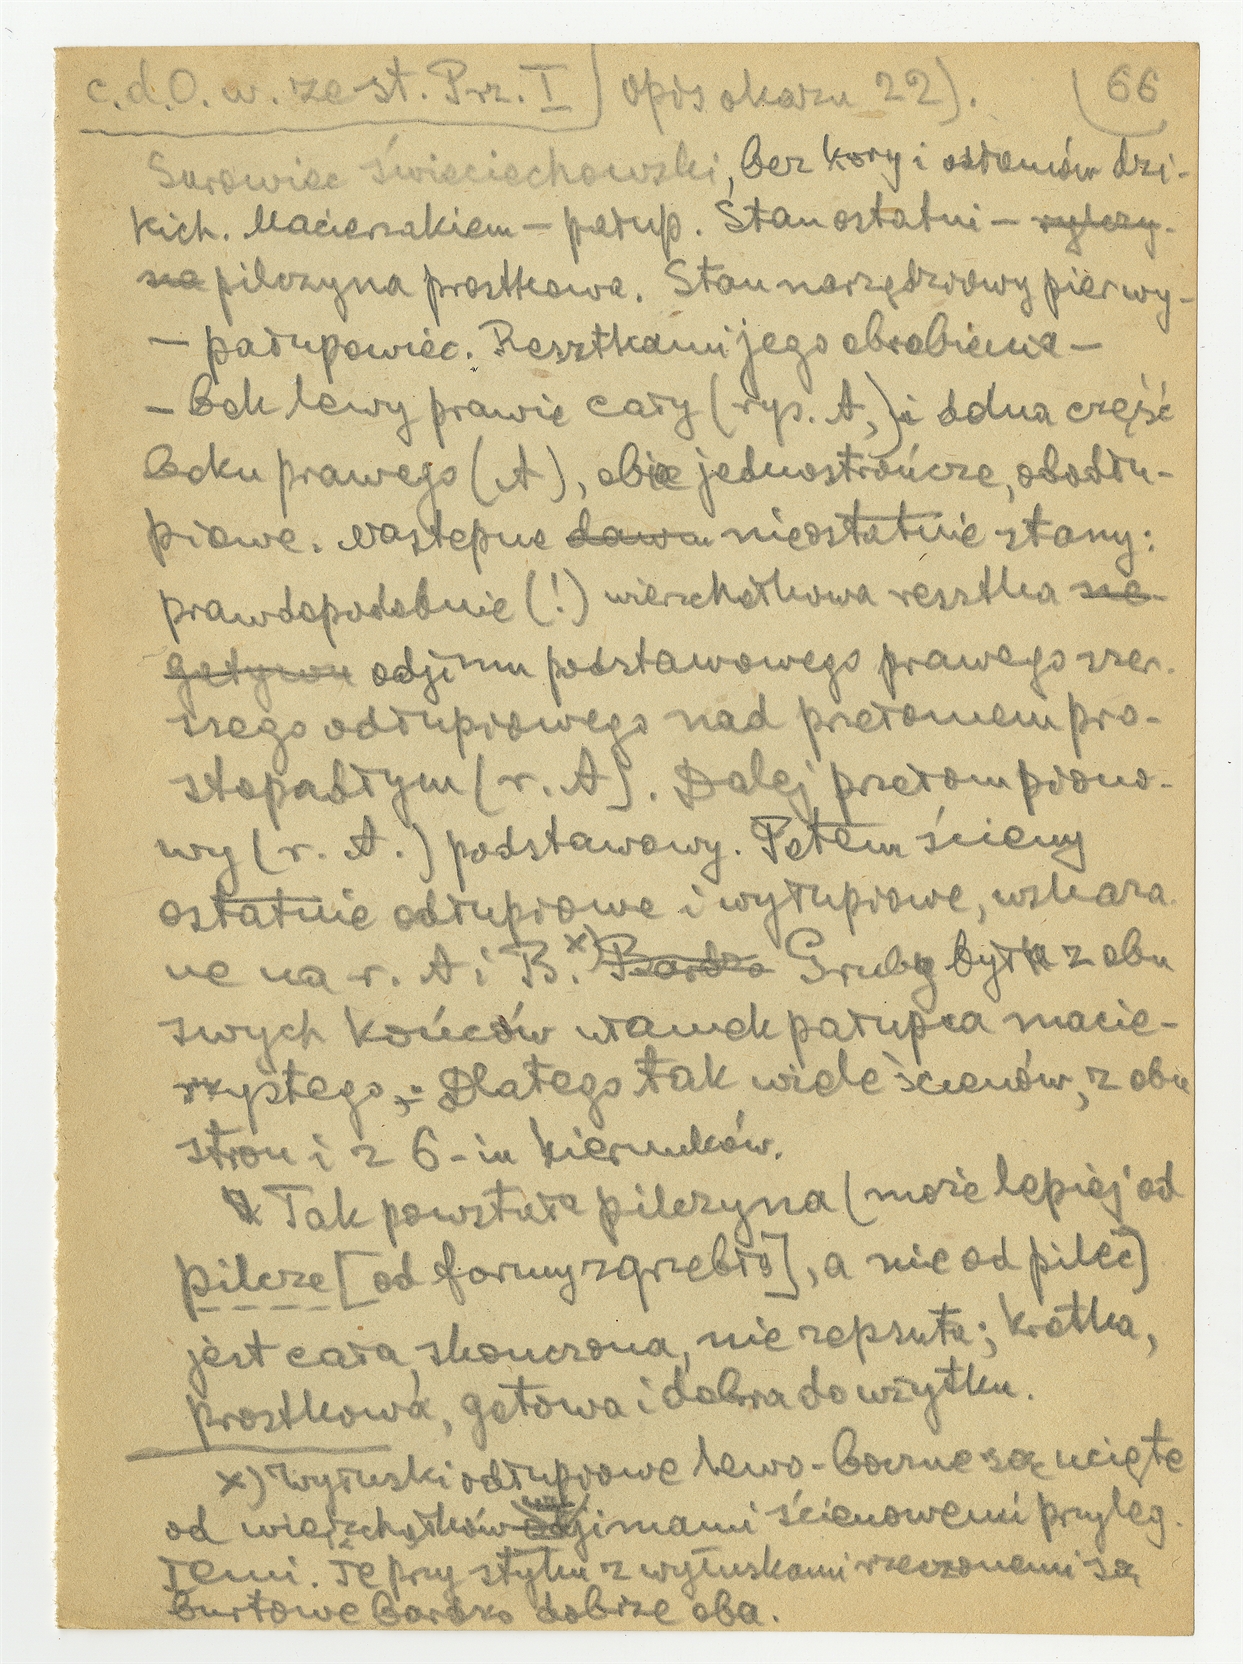 c.d.O. w. zest. Prz. I) opis okazu 22). (66
Surowiec świeciechowski, bez kory i odłomów dzi-
kich. Macierzakiem – połup. Stan ostatni – rylczy-
na pilczyna prostkowa. Stan narzędziowy pierwy-
– połupowiec. Resztkami jego obrobienia –
– bok lewy prawie cały (rys. A,) i jedna część
boku prawego (A), obie jednostrończe, obodłu-
piowe. Następne dawn nieostatnie stany:
prawdopodobnie (!) wierzchołkowa resztka ne-
gatywu odjimu podstawowego prawego szer-
szego odłupiowego nad przełomem pro-
stopadłym (r. A). Dalej przełom piono-
wy (r. A.) podstawowy. Potem ścieny
ostatnie odłupiowe i wyłupiowe, wskaza-
ne na r. A i B.x) Bardzo Gruby był z obu
swych końców ułamek połupca macie-
rzystego; Dlatego tak wiele ścienów, z obu
stron i z 6-iu kierunków.
Tak powstała pilczyna (może lepiej od
pilcze [od formy zgrzebło], a nie od pilec)
jest cała, skończona, nie zepsuta; krótka,
prostkowa, gotowa i dobra do użytku.
x) Wyłuski odłupiowe lewo-boczne są ucięte
od wierzchołków odjimami ścienowemi przyleg-
łemi. Te przy styku z wyłuskami rzeczonemi są
burtowe bardzo dobrze oba.